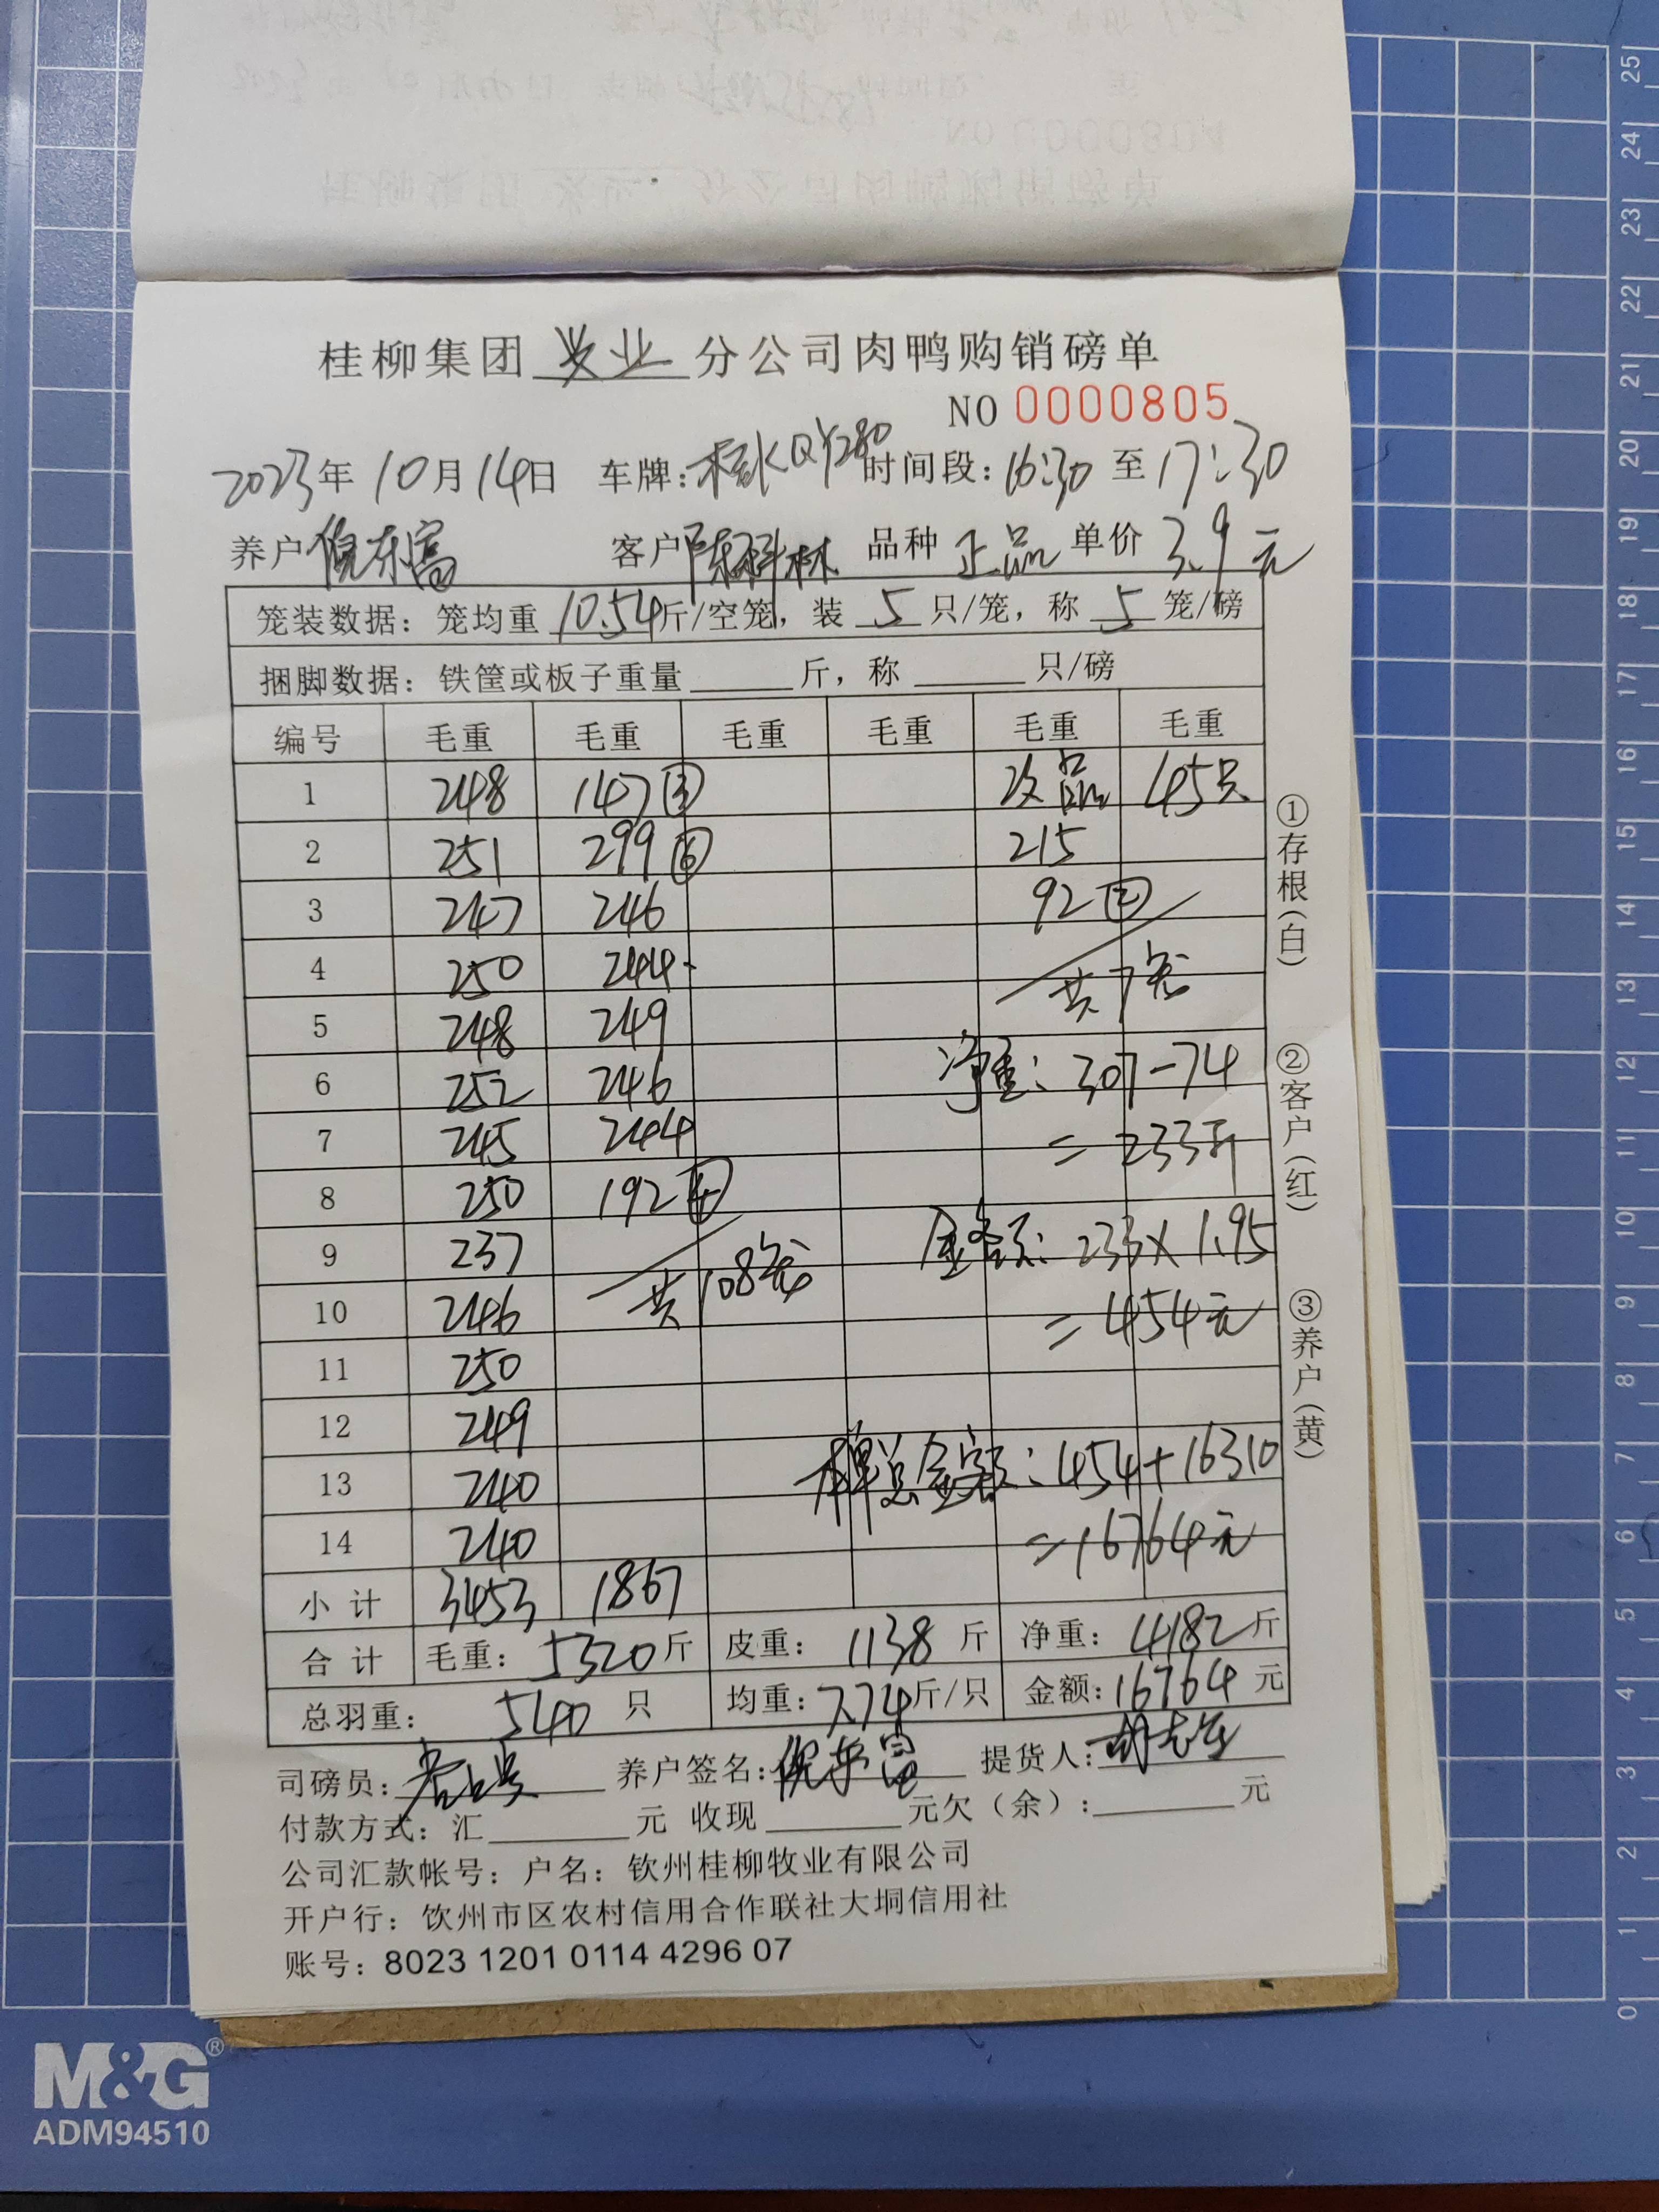 桂柳集团 兴业 分公司肉鸭购销磅单
NO 0000805
2023年 10月14日 车牌:桂KQY280 时间段:16:30 至 17:30
养户 倪东富 客户 陈科林 品种 正品 单价 3.9元
笼装数据:笼均重 10.54 斤/空笼,装 5 只/笼,称 5 笼/磅
捆脚数据:铁筐或板子重量 斤,称 只/磅
编号 毛重 毛重 毛重 毛重 毛重 毛重
1 248 147③ 次品 45只
2 251 299⑥ 215
3 247 246 92②
4 250 244 共7笼
5 248 249
6 252 246 净重:307-74
7 245 244 =233斤
8 250 192④
9 237 共108笼 金额:233×1.95
10 246 =454元
11 250
12 249
13 240 本单总金额:454+16310
14 240 =16764元
小计 3453 1867
合计 毛重:5320斤 皮重:1138斤 净重:4182斤
总羽重:540只 均重:7.74斤/只 金额:16764元
司磅员: 养户签名:倪东富 提货人:
付款方式:汇 元 收现 元欠(余): 元
公司汇款帐号:户名:钦州桂柳牧业有限公司
开户行:钦州市区农村信用合作联社大垌信用社
账号:8023 1201 0114 4296 07
①存根(白) ②客户(红) ③养户(黄)
M&G®
ADM94510
25
24
23
22
21
20
19
18
17
16
15
14
13
12
11
10
9
8
7
6
5
4
3
2
1
0